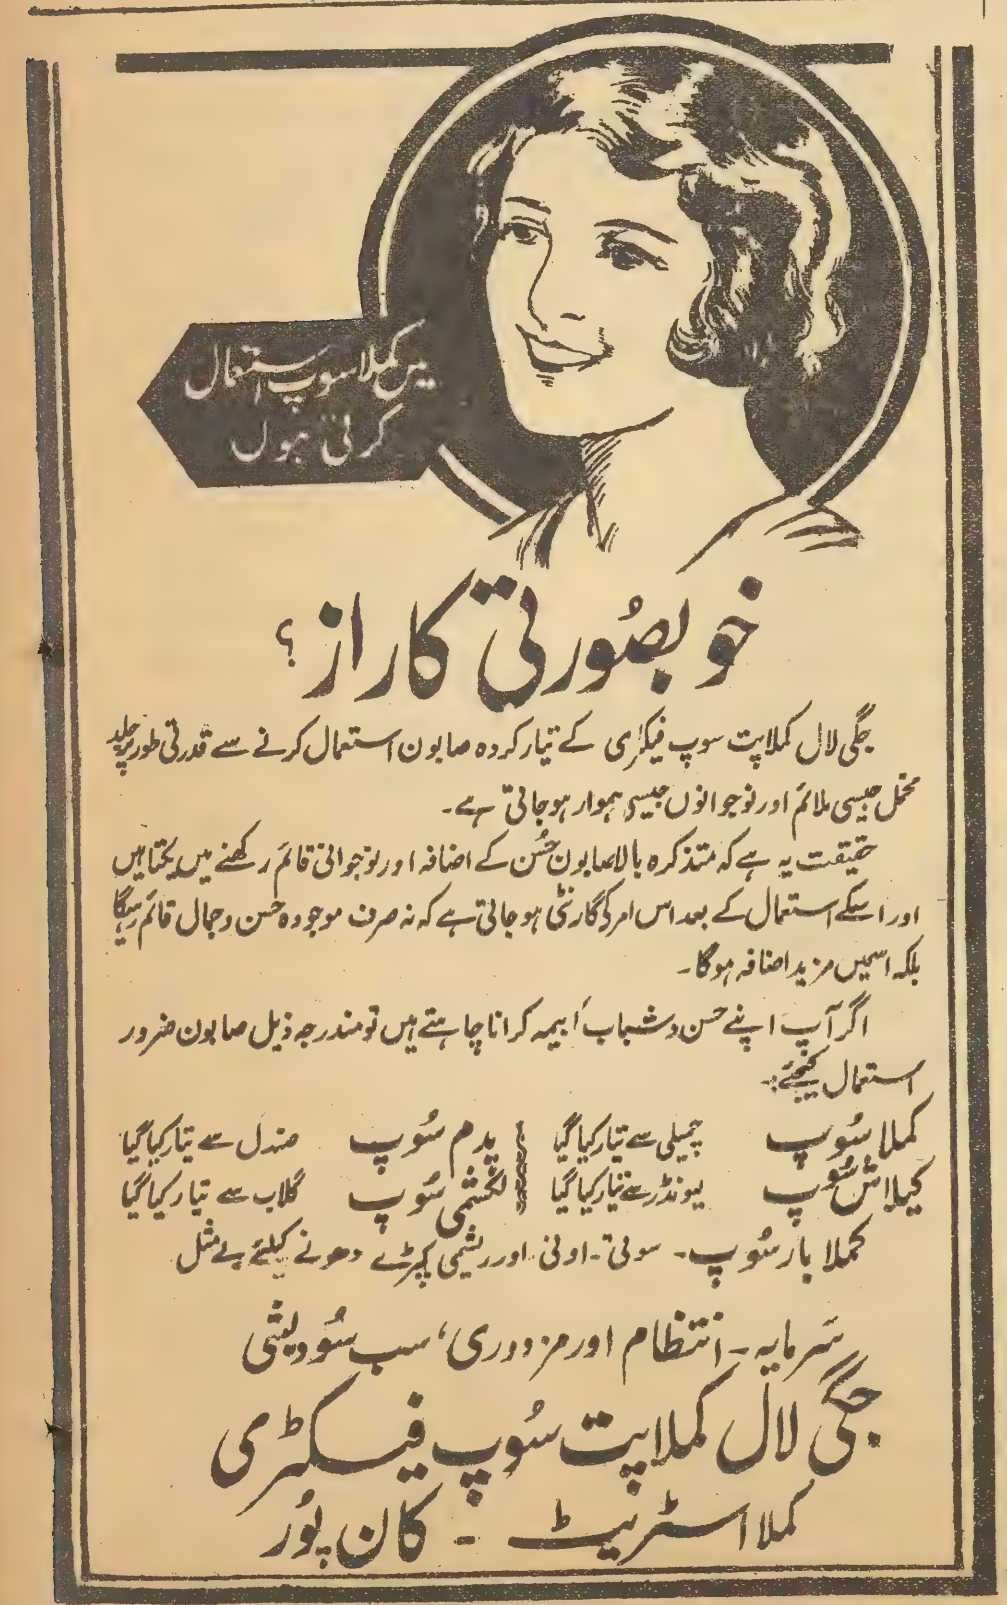 میں کملا سوپ استعمال
کرتی ہوں
خوبصُورتی کا راز ؟
جگی لال کملاپت سوپ فیکٹری کے تیار کردہ صابون استعمال کرنے سے قدرتی طور پر جلد
مخمل جیسی ملائم اور نوجوانوں جیسی ہموار ہو جاتی ہے۔
حقیقت یہ ہے کہ متذکرہ بالا صابون حُسن کے اضافہ اور نوجوانی قائم رکھنے میں یکتا ہیں
اور اسکے استعمال کے بعد اس امر کی گارنٹی ہو جاتی ہے کہ نہ صرف موجودہ حسن و جمال قائم رہیگا
بلکہ اسمیں مزید اضافہ ہوگا۔
اگر آپ اپنے حسن و شباب اُ بیمہ کرانا چاہتے ہیں تو مندرجہ ذیل صابون ضرور
استعمال کیجئے:۔
کملا سُوپ چمیلی سے تیار کیا گیا پدم سُوپ صندل سے تیار کیا گیا
کیلاش سُوپ لیونڈر سے تیار کیا گیا لکشمی سُوپ گلاب سے تیار کیا گیا
کملا بار سُوپ۔ سوتی۔ اونی۔ اور ریشمی کپڑے دھونے کیلئے بے مثل
سَرمایہ۔ انتظام اور مزدوری، سب سُودیشی
جگی لال کملاپت سُوپ فیکٹری
کملا اسٹریٹ ۔ کان پُور